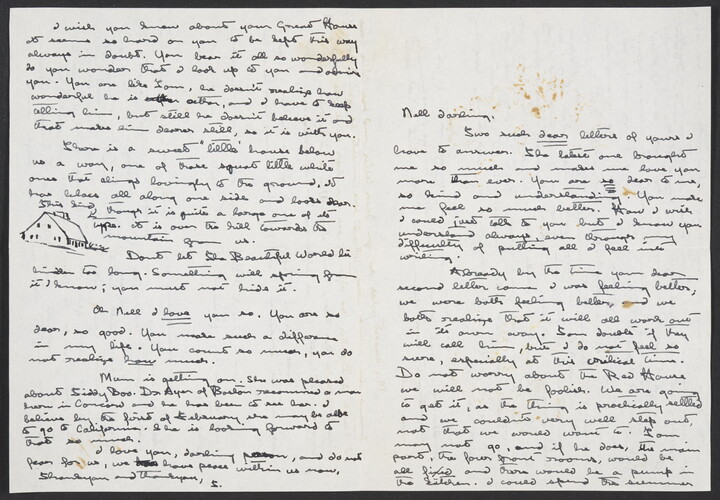 I wish you knew about your Great House
It seems so hard on you to be left this way
always in doubt. You bear it all so wonderfully
Do you wonder that I look up to you and admire
you. You are like Tom, he doesn't realize how
wonderful he is either, and I have to keep
telling him, but still he doesn't believe it and
that makes him dearer still, so it is with you.
There is a sweet "little" house below
us a way, one of those squat little white
ones that clings lovingly to the ground. It
has lilacs all along one side and looks dear.
This kind, though it is quite a large one of its
type. It is over the hill towards the
mountain from us.
Don't let The Beautiful World lie
hidden too long. Something will spring from
it I know; you must not hide it.
Oh Nell I love you so. You are so
dear, so good. You make such a difference
in my life. You count so much, you do
not realize how much.
Mum is getting on. She was pleased
about Siddy Doo. Dr Ayer of Boston recommend a man
here in Concord and he has been to see her. I
believe by the first of February she may be able
to go to California. She is looking forward to
that so much.
I love you, darling and do not
fear for us, we have peace within us now,
Thankyou and thankyou,
S.
Nell darling,
Two such dear letters of yours I
have to answer. The latest one brought
me so much and makes me love you
more than ever. You are so dear to us,
so kind and understanding. You make
me feel so much better. How I wish
I could just talk to you but I know you
understand always, even through my
difficulty of putting all I feel into
writing.
Already by the time your dear
second letter came I was feeling better,
we were both feeling better, and we
both realize that it will all work out
in its own way. Tom doubts if they
will call him, but I do not feel so
sure, especially at this critical time.
Do not worry about the Red House
we will not be foolish. We are going
to get it, as the thing is practically settled
and we couldn't very well step out,
not that we would want to. Tom
may not go, and if he does, the main
part, the four front rooms, would be
all fixed and there would be a pump in
the kitchen. I could spend the summer